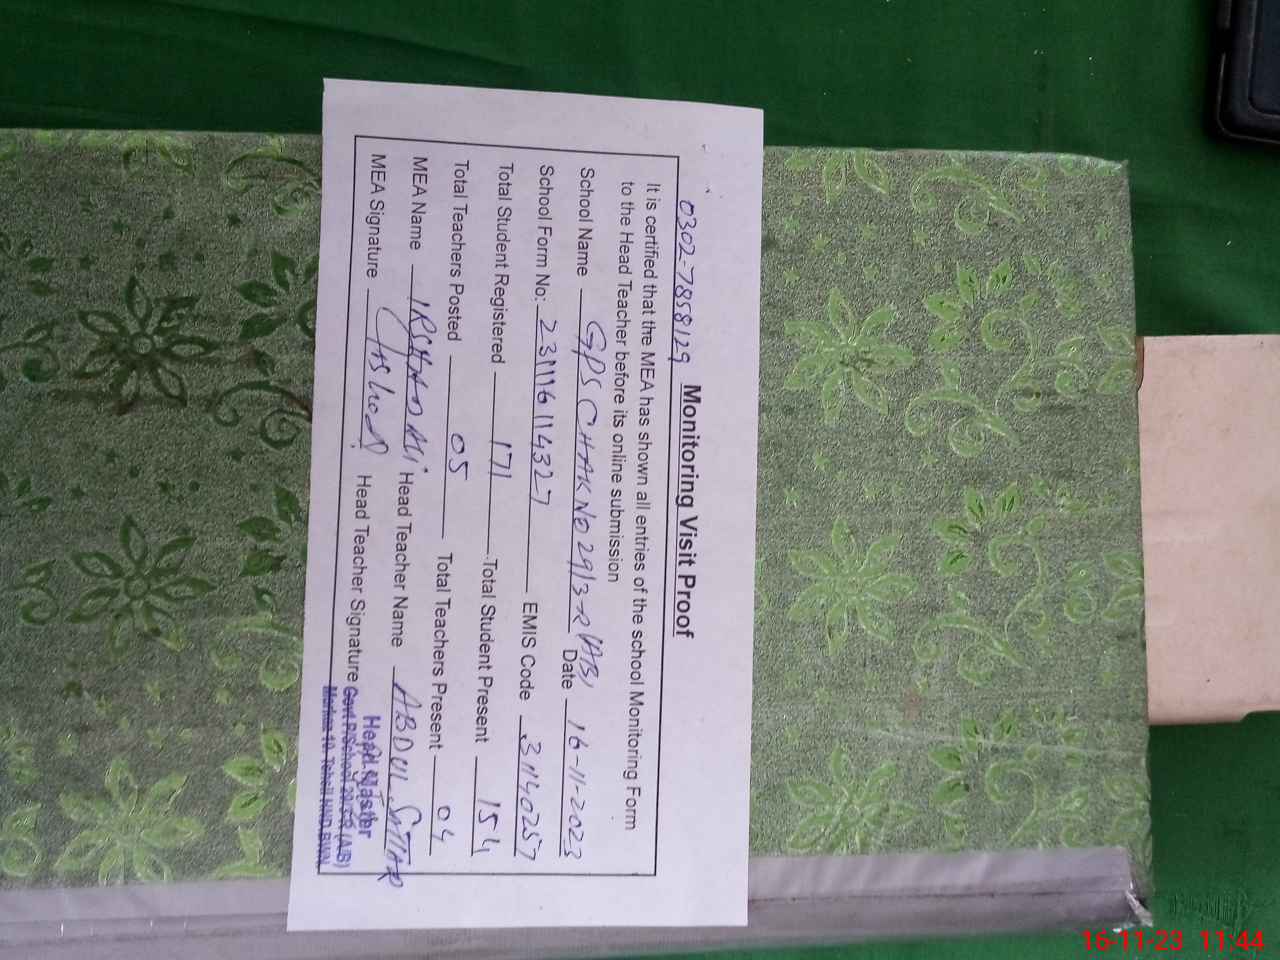 0302-7858129 Monitoring Visit Proof
It is certified that the MEA has shown all entries of the school Monitoring Form
to the Head Teacher before its online submission
School Name GPS CHAK NO 29/3-R (AB) Date 16-11-2023
School Form No: 231116114327 EMIS Code 31140257
Total Student Registered 171 Total Student Present 154
Total Teachers Posted 05 Total Teachers Present 04
MEA Name IRSHAD ALI Head Teacher Name ABDUL SATTAR
MEA Signature Irshad Head Teacher Signature
Head Master
Govt P/School 29/3-R (A/B)
Markaz 10 Tehsil HND BWN
16-11-23 11:44